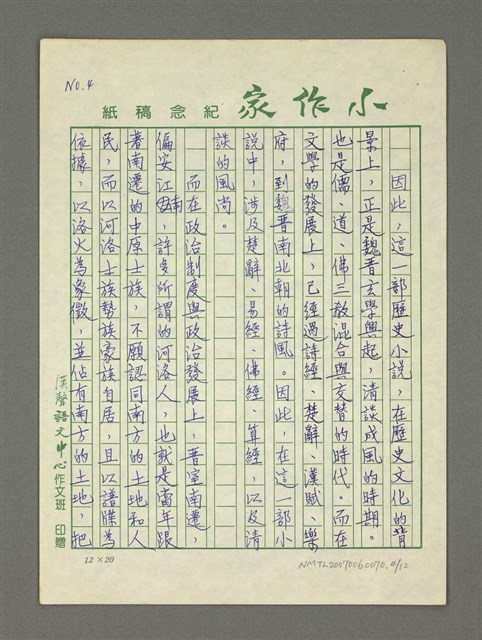 No.4
小作家
紀念稿紙
因此,這一部歷史小說,在歷史文化的背
景上,正是魏晉玄學興起,清談成風的時期。
也是儒、道、佛三教混合與交替的時代。而在
文學的發展上,已經過詩經、楚辭、漢賦、樂
府,到魏晉南北朝的詩風。因此,在這一部小
說中,涉及楚辭、易經、佛經、算經,以及清
談的風尚。
而在政治制度與政治發展上,晉室南遷,
偏安江南,許多所謂的河洛人,也就是當年跟
著南遷的中原士族,不願認同南方的土地和人
民,而以河洛士族勢族豪族自居,且以譜牒為
依據,以洛火為象徵,並佔有南方的土地,把
漢聲語文中心作文班 印贈
12×20
NMTL20070060070. 4/12